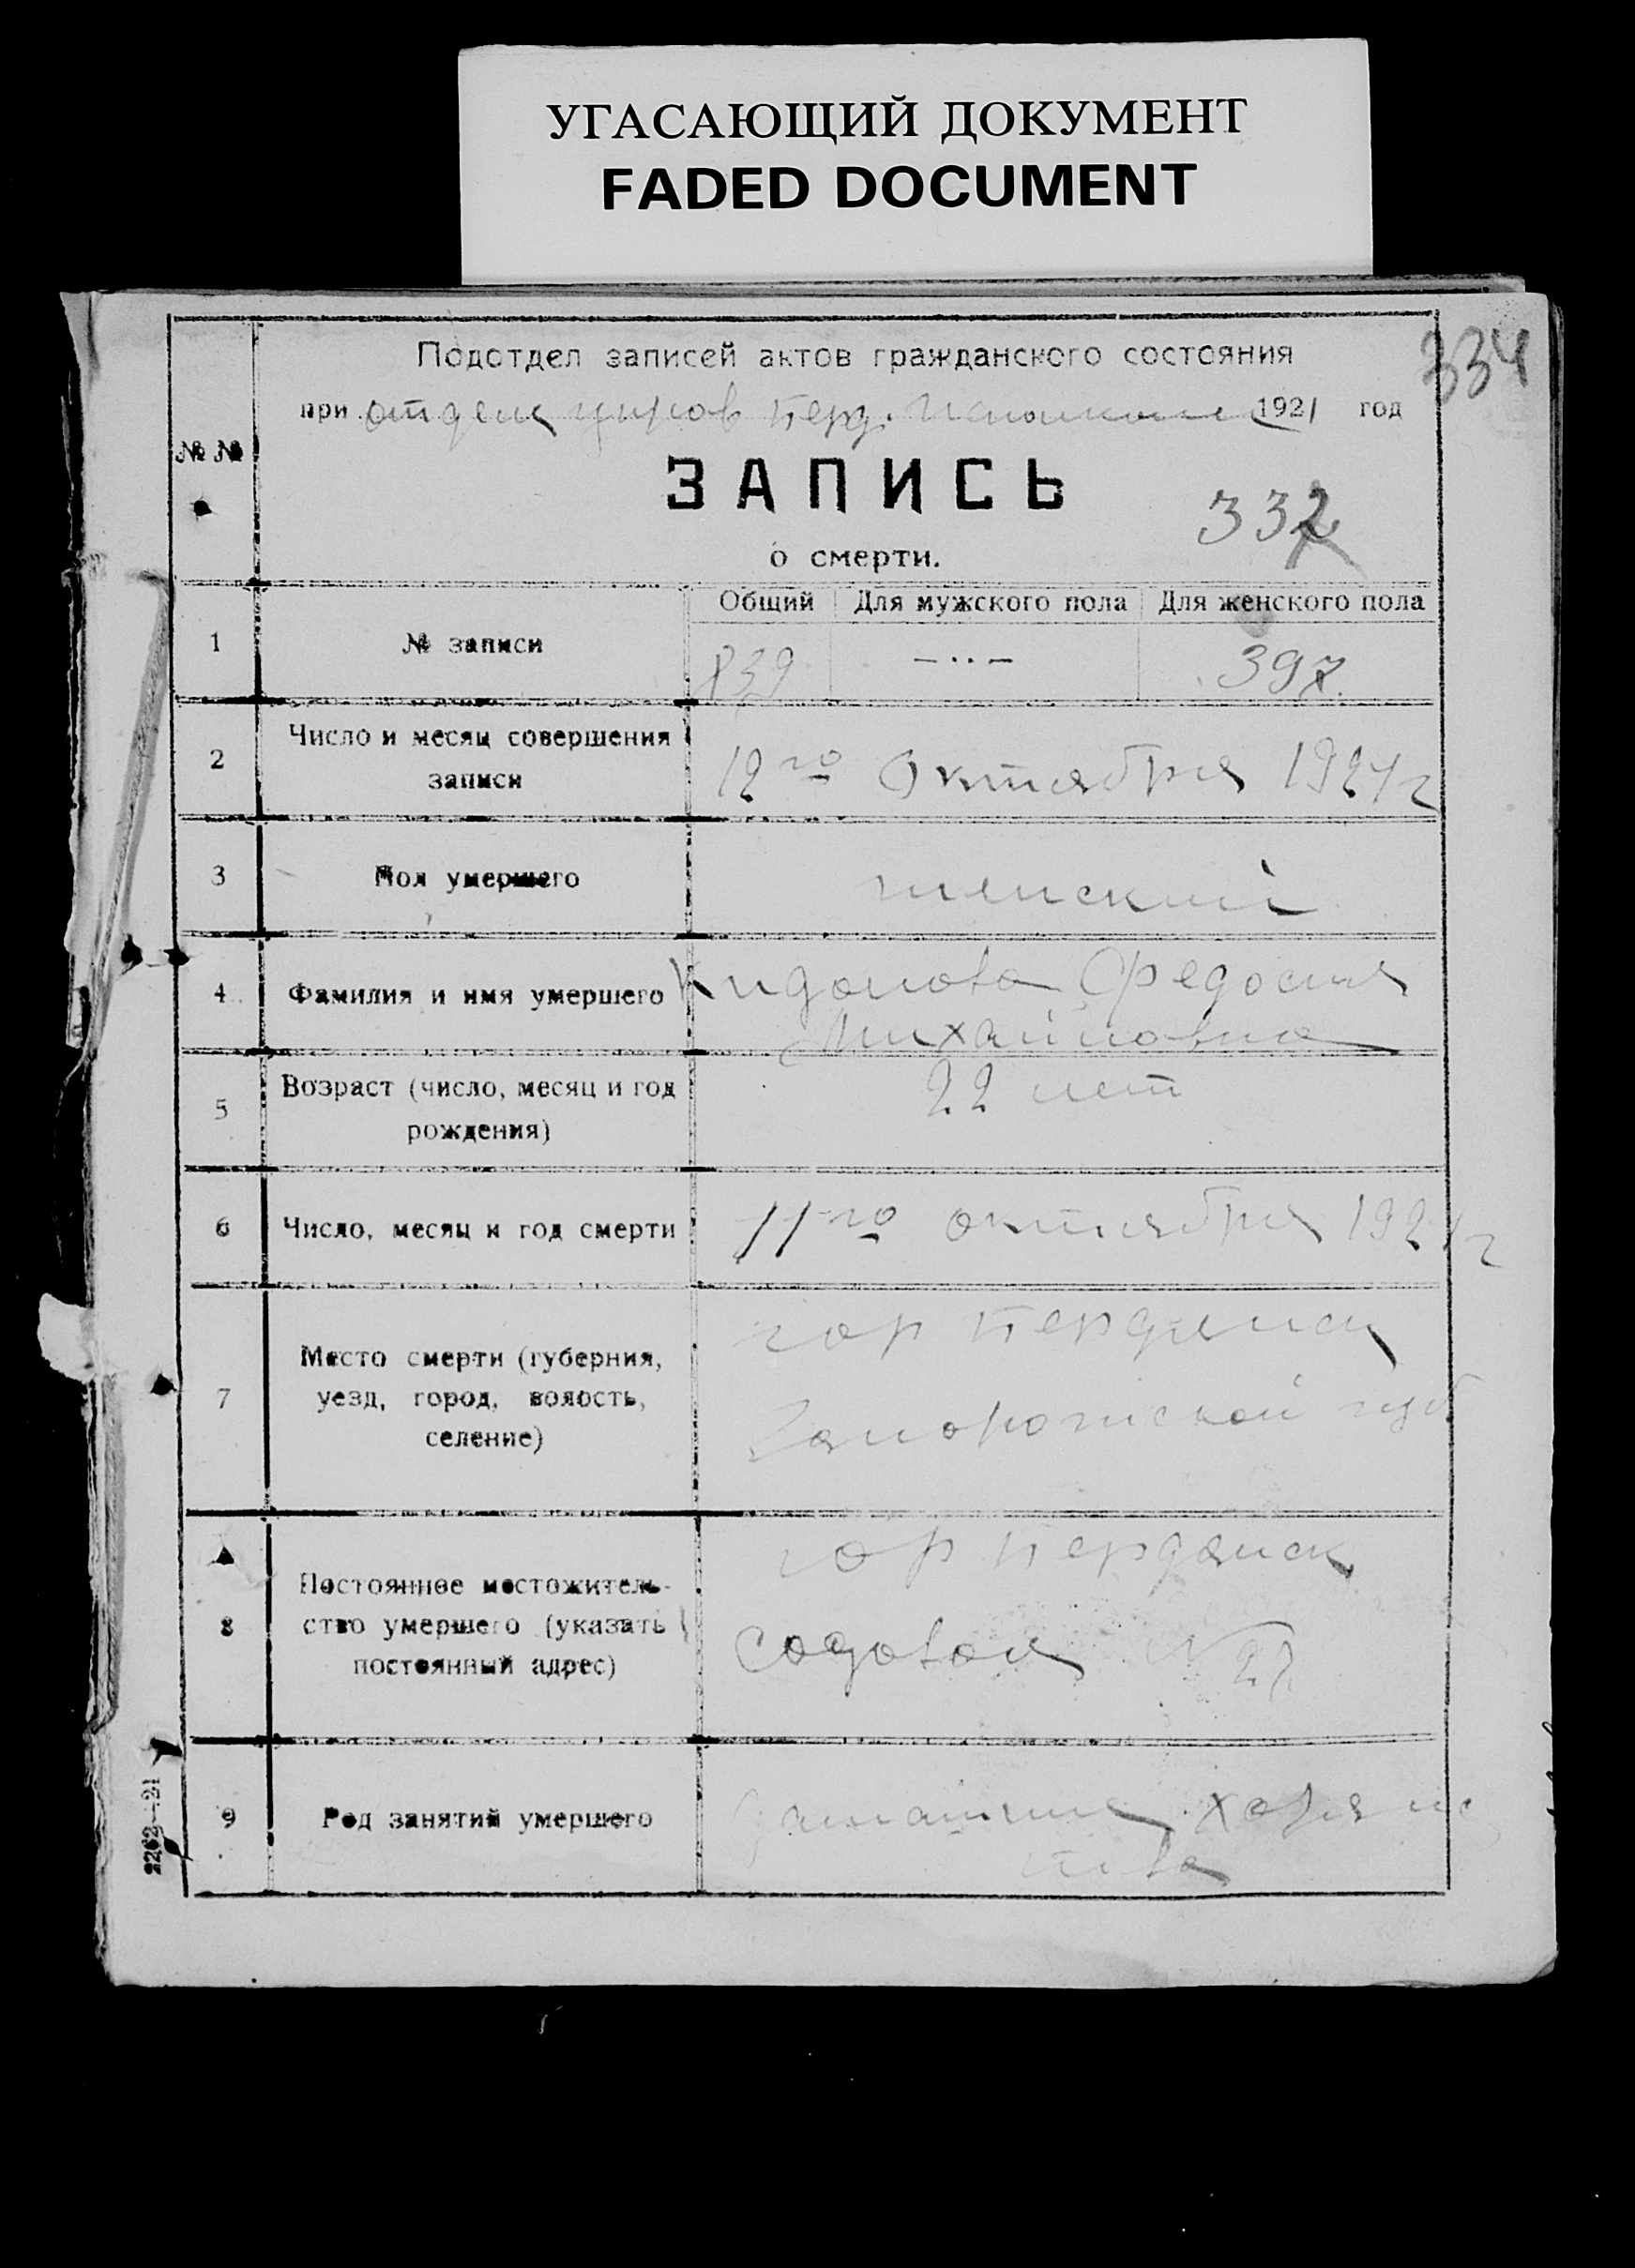 УГАСАЮЩИЙ ДОКУМЕНТ
FADED DOCUMENT
334
Подотдел записей актов гражданского состояния
при отделе управ Берд. Исполкома 1921 год
№ №
ЗАПИСЬ
332
о смерти.
Общий Для мужского пола Для женского пола
1 № записи 839 — ·· — 397
2 Число и месяц совершения
записи
12го Октября 1921 г
3 Пол умершего женский
4 Фамилия и имя умершего Кидалова Федосия
Михайловна
5 Возраст (число, месяц и год
рождения)
22 лет
6 Число, месяц и год смерти 11го октября 1921 г
7 Место смерти (губерния,
уезд, город, волость,
селение)
гор Бердянск
Запорожской губ
8 Постоянное местожитель-
ство умершего (указать
постоянный адрес)
гор Бердянск
Садовая № 27
9 Род занятий умершего домашнее хозяйс
тво
2262—21